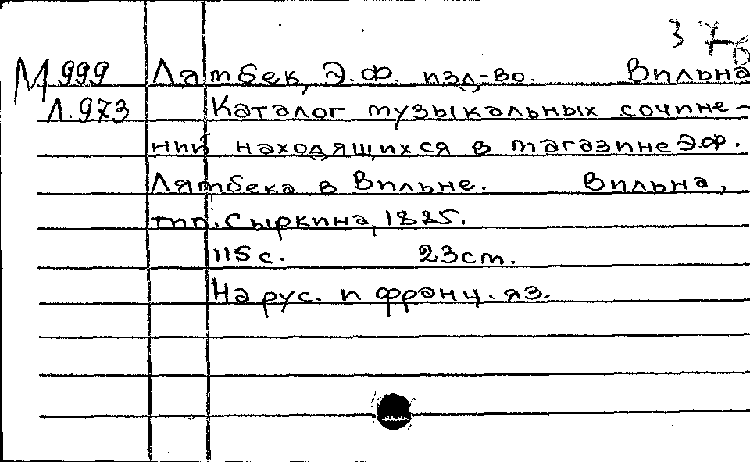 37б
М 999 Лятбек, Э.Ф. изд-во. Вильна
Л.973 Каталог музыкальных сочине-
ний находящихся в магазине Э.Ф.
Лятбека в Вильне. Вильна,
тип. Сыркина, 1885.
115 с. 23 см.
На рус. и франц. яз.